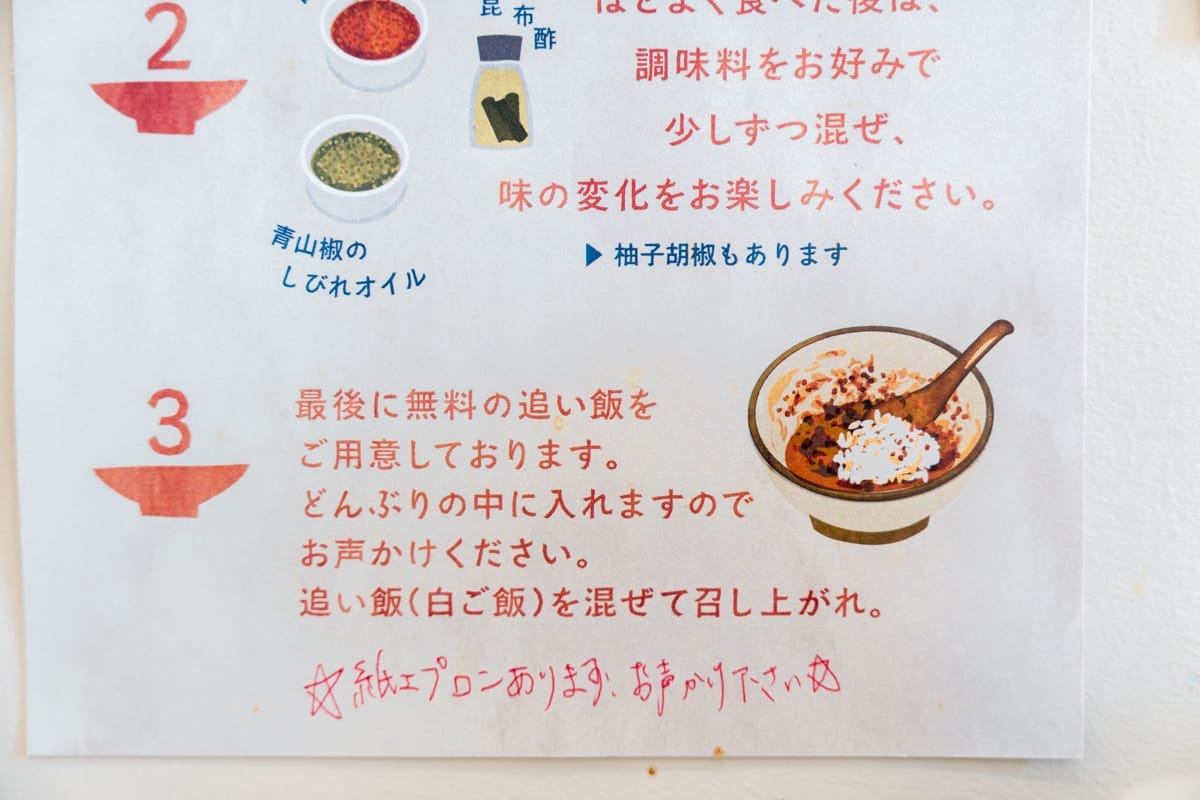 2
昆布酢
ほどよく食べた後は、
調味料をお好みで
少しずつ混ぜ、
味の変化をお楽しみください。
青山椒の
しびれオイル
▶柚子胡椒もあります
3
最後に無料の追い飯を
ご用意しております。
どんぶりの中に入れますので
お声かけください。
追い飯(白ご飯)を混ぜて召し上がれ。
☆紙エプロンあります、お声かけ下さい☆